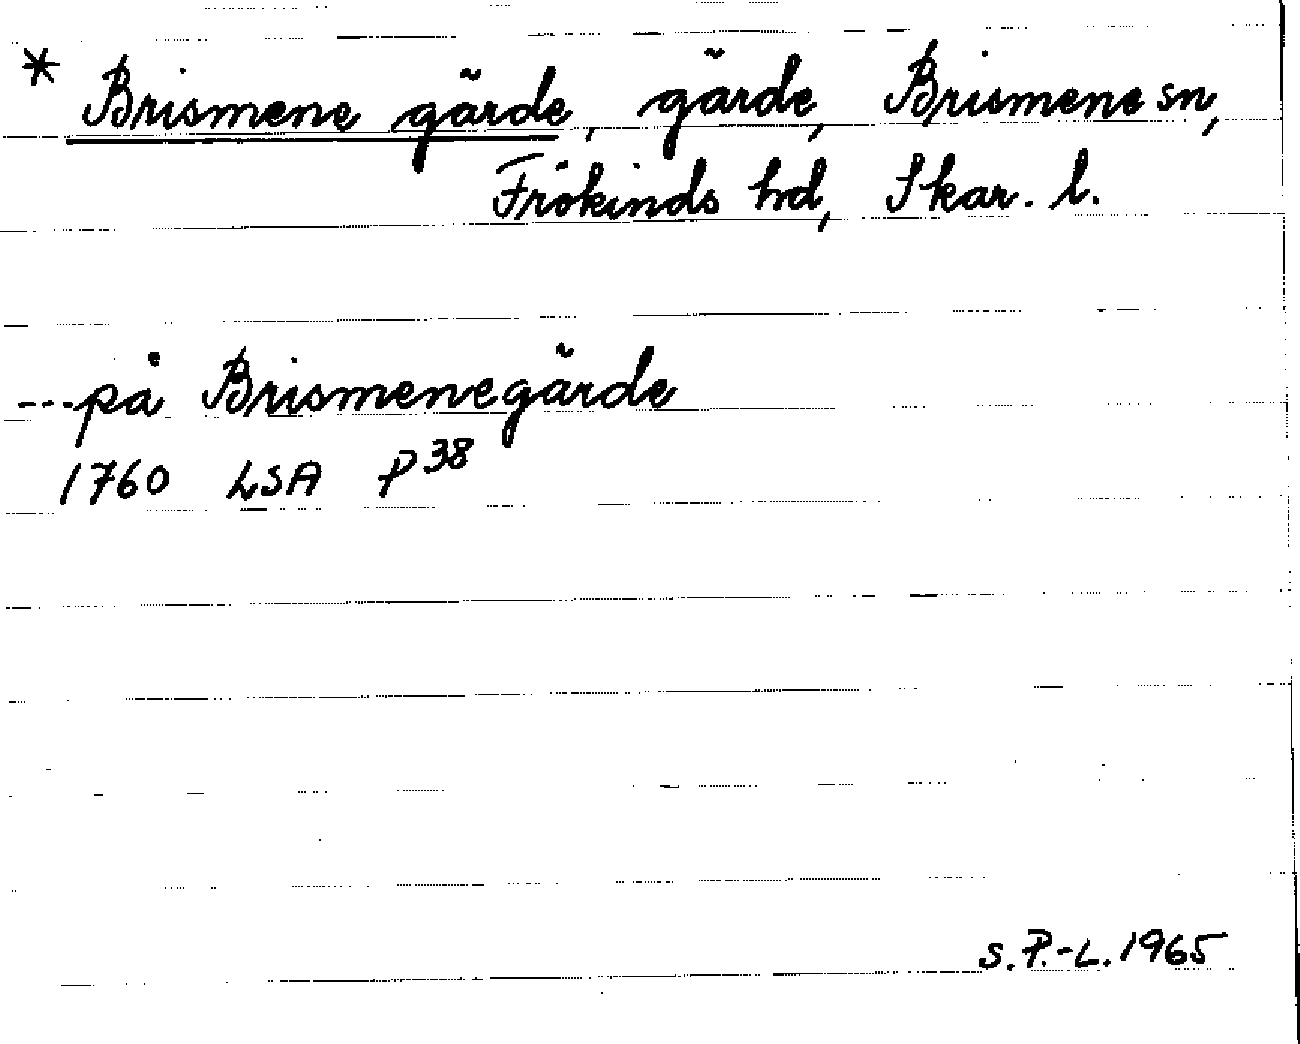 * Brismene gärde, gärde, Brismene sn,
Frökinds hd, Skar. l.
---på Brismenegärde
1760 LSA P38
S.P.-L. 1965